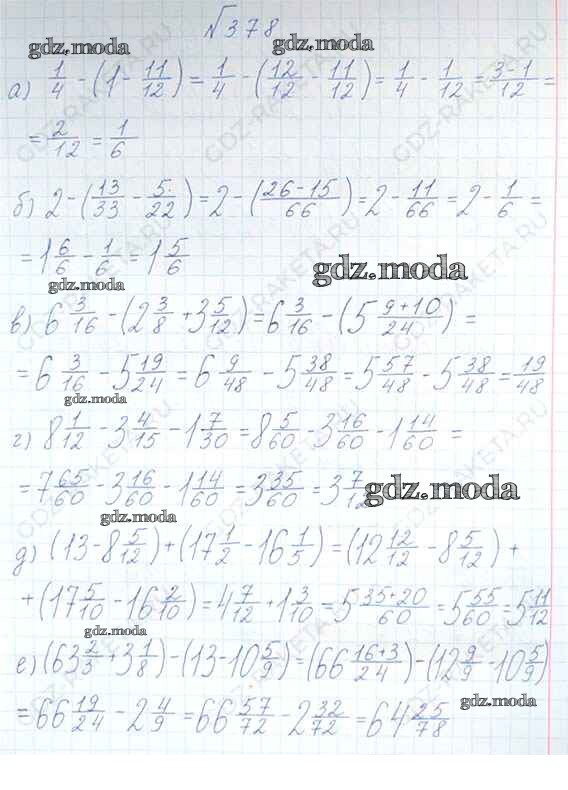 №378
gdz.moda gdz.moda
а) 1/4 - (1 - 11/12) = 1/4 - (12/12 - 11/12) = 1/4 - 1/12 = 3-1/12 =
= 2/12 = 1/6
gdz.moda
б) 2 - (13/33 - 5/22) = 2 - (26-15/66) = 2 - 11/66 = 2 - 1/6 =
= 1 6/6 - 1/6 = 1 5/6
gdz.moda gdz.moda
в) 6 3/16 - (2 3/8 + 3 5/12) = 6 3/16 - (5 9+10/24) =
= 6 3/16 - 5 19/24 = 6 9/48 - 5 38/48 = 5 57/48 - 5 38/48 = 19/48
gdz.moda
г) 8 1/12 - 3 4/15 - 1 7/30 = 8 5/60 - 3 16/60 - 1 14/60 =
= 7 65/60 - 3 16/60 - 1 14/60 = 3 35/60 = 3 7/12
gdz.moda
gdz.moda
д) (13 - 8 5/12) + (17 1/2 - 16 1/5) = (12 12/12 - 8 5/12) +
+ (17 5/10 - 16 2/10) = 4 7/12 + 1 3/10 = 5 35+20/60 = 5 55/60 = 5 11/12
gdz.moda
е) (63 2/3 + 3 1/8) - (13 - 10 5/9) = (66 16+3/24) - (12 9/9 - 10 5/9)
gdz.moda
= 66 19/24 - 2 4/9 = 66 57/72 - 2 32/72 = 64 25/78
GDZ-RAKETA.RU